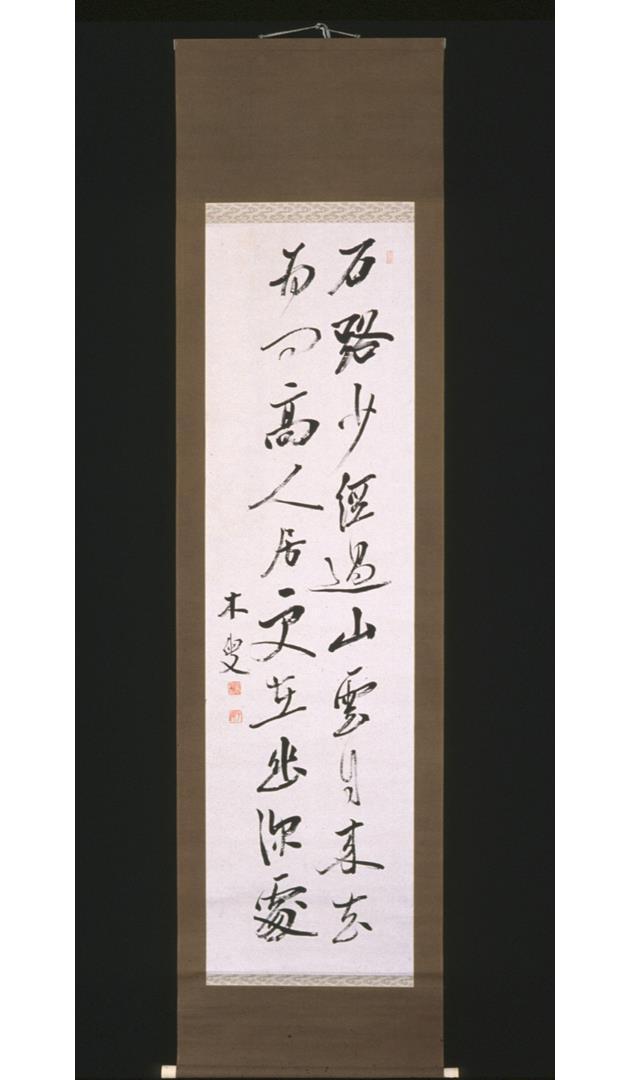 石路少經過山雲自來去
為問高人居更在幽深處
木叟